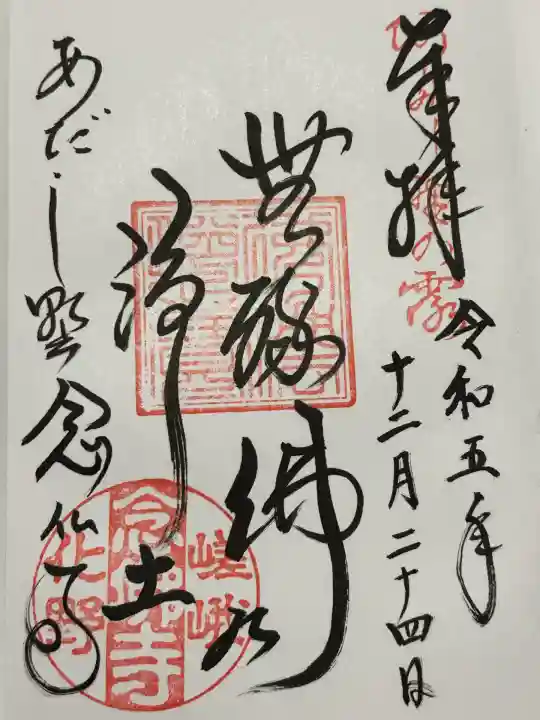 奉拝
令和五年
十二月二十四日
無縁佛
浄土
あだし野念仏寺
嵯峨
念佛寺
化野